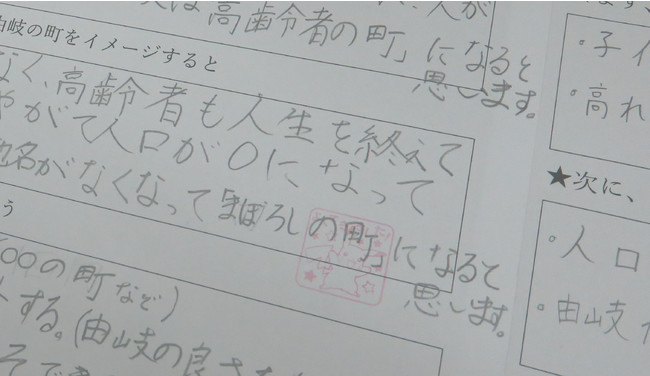 は高齢者の町」になると
思います。
由岐の町をイメージすると
なく、高齢者も人生を終えて
やがて人口が〇になって
地名がなくなって「まぼろしの町」になると
思います。
う
〇〇の町など)
する。(由岐の良さ
・子
・高れ
★次に、
・人口
・由岐